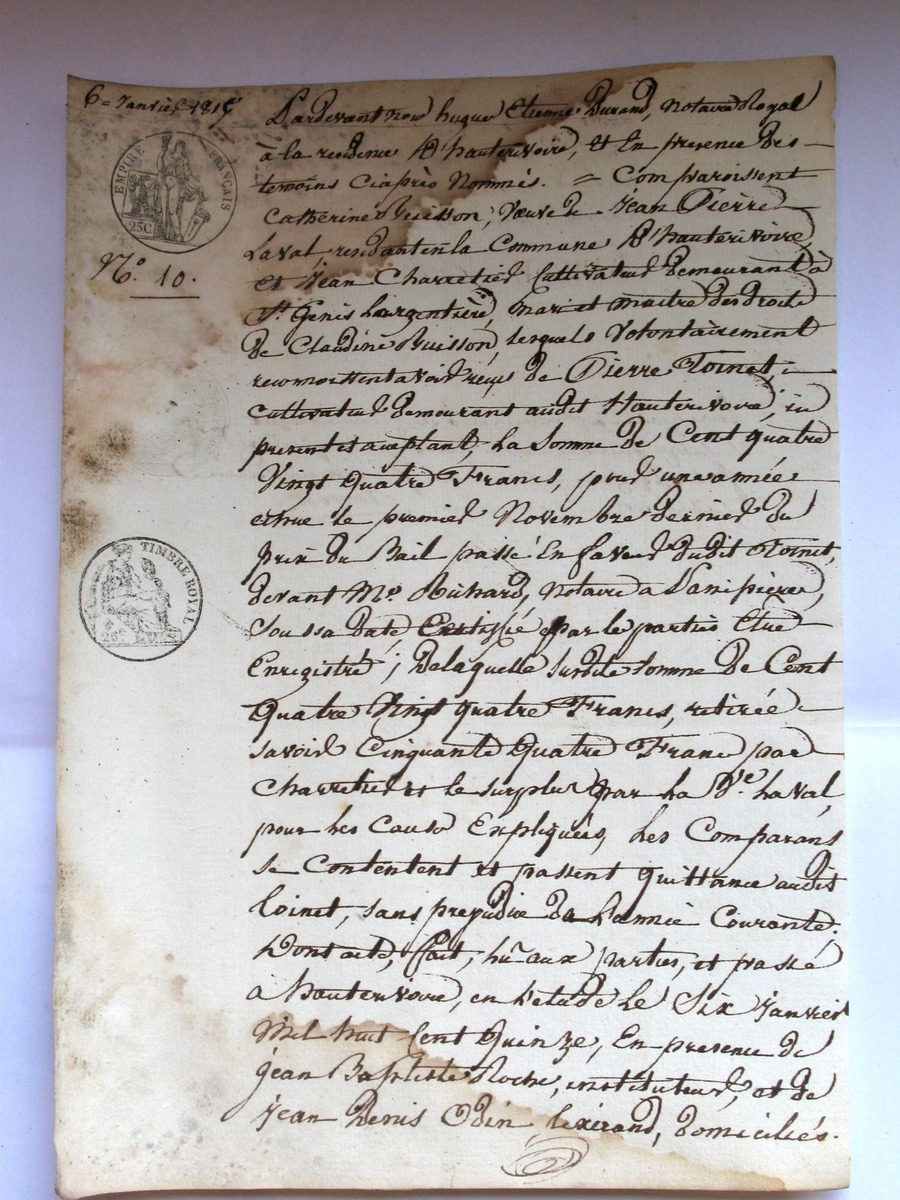 6= Janvier 1815
EMPIRE FRANÇAIS
25C
N.° 10.
TIMBRE ROYAL
25
Pardevant nous hugue Etienne Durand, Notaire Royal
à la residence D'hauterivoire, et En presence des
temoins Ciaprès Nommés. = Comparoissent
Catherine Buisson, Veuve de Jean Pierre
Laval, residante en la Commune D'hauterivoire,
et Jean Charretier Cultivateur Demeurant à
St. Genis Largentière, mari et maitre des droits
de Claudine Buisson, lesquels Volontairement
reconnoissent avoir reçus de Pierre Toinet
cultivateur demeurant audit Hauterivoire, ici
present et aceptant, la Somme de Cent quatre
Vingt Quatre Francs, pour une année
echue le premier Novembre dernier du
prix du Bail passé En faveur dudit Toinet,
devant M.e Richard, Notaire a
Sous sa Date Certifié par les parties Etre
Enregistré; De laquelle Surdite Somme De Cent
Quatre Vingt quatre Francs, retirée
savoir Cinquante Quatre Franc par
Charretier et le surplus par La D.e Laval,
pour les Causes Expliquées, Les Comparans
se Contentent et passent quittance audit
Toinet, sans prejudice de L'année Courante.
Dont acte, fait, lu aux parties, et passé
à hauterivoire, en L'etude Le Six Janvier
Mil huit Cent Quinze, En presence de
Jean Baptiste Roche, instituteur, et de
Jean Denis Odin tixerand, Domiciliés.